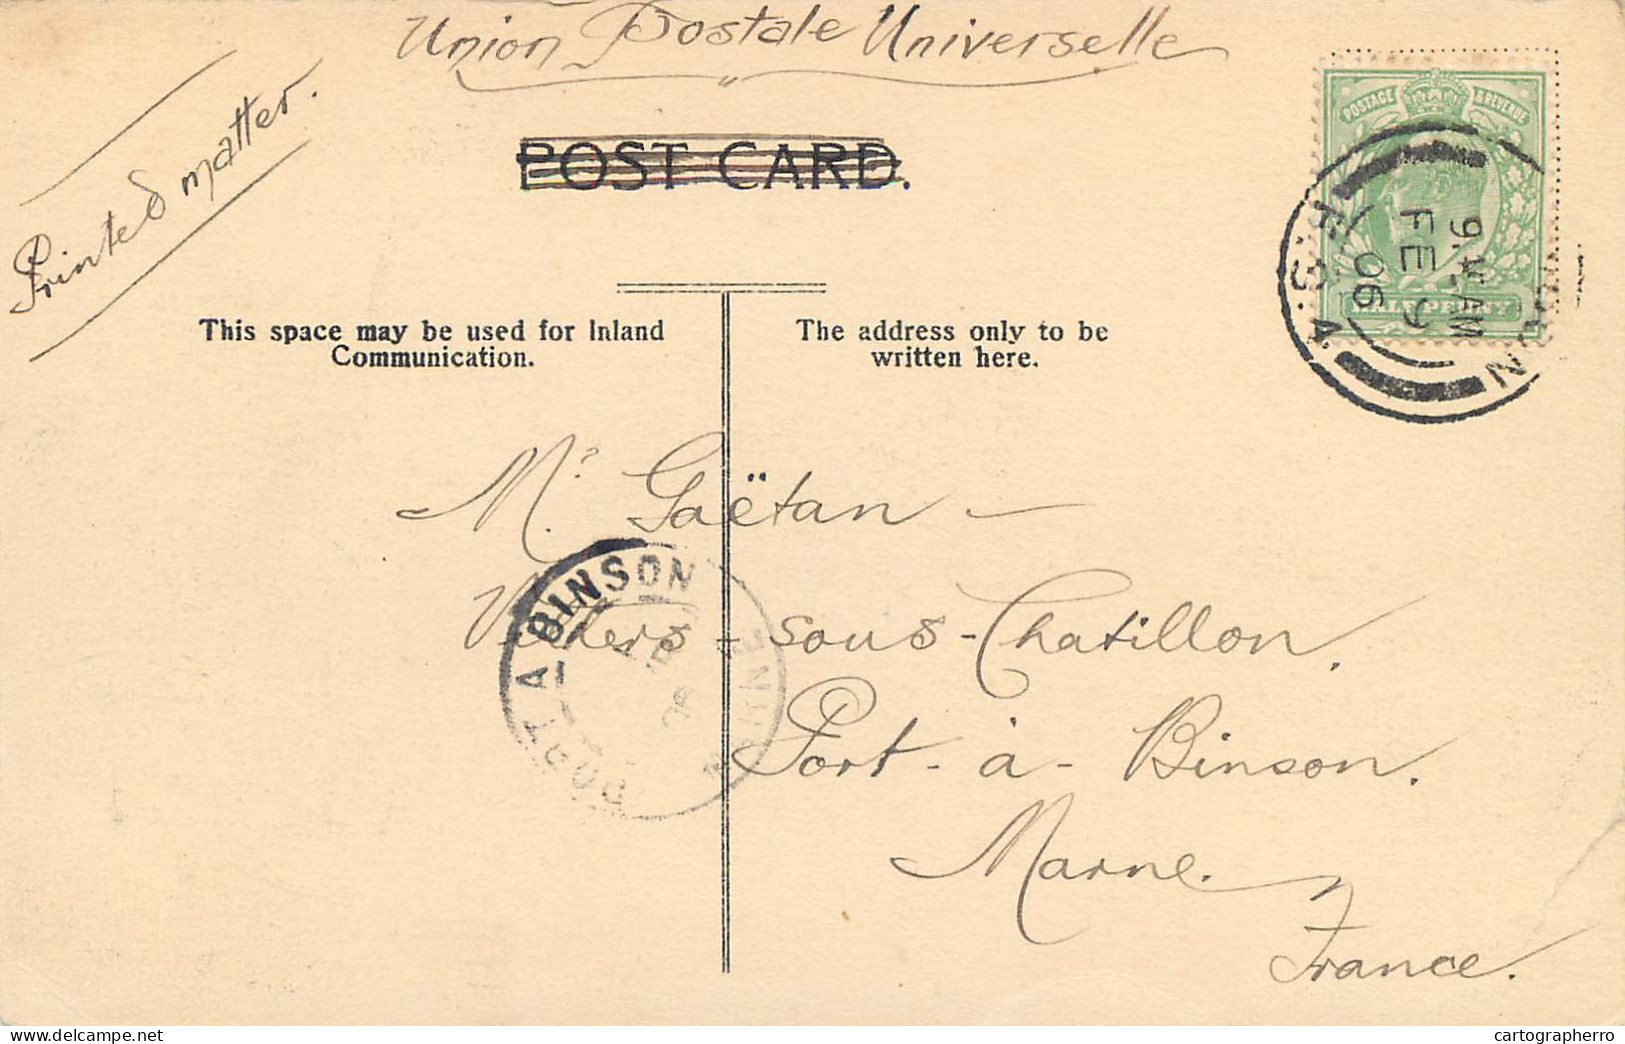 Union Postale Universelle
Printed matter.
POST CARD.
POSTAGE & REVENUE
HALFPENNY
F.S.A.
FE 9
06
This space may be used for Inland
Communication.
The address only to be
written here.
Mr. Gaëtan —
sous-Chatillon,
Port-à-Binson.
Marne.
France.
PORT A BINSON
MARNE
delcampe.net
cartographerro